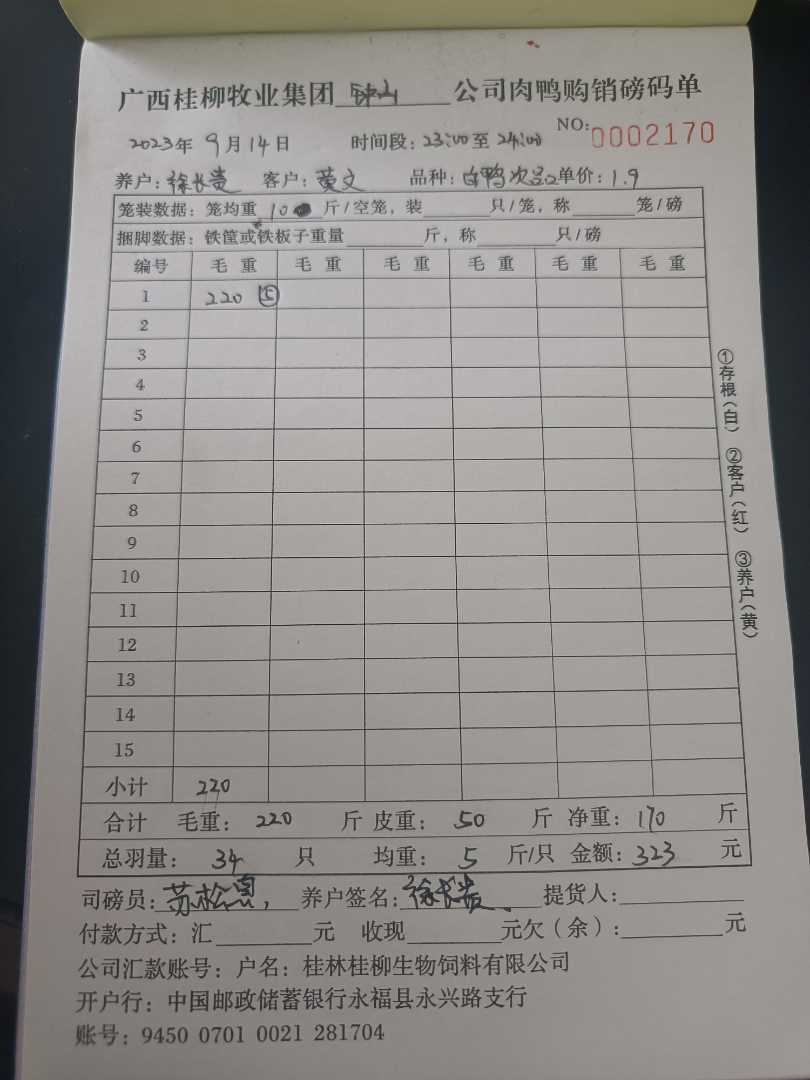 广西桂柳牧业集团 钟山 公司肉鸭购销磅码单
NO: 0002170
2023年 9月14日 时间段: 23:00至 24:00
养户: 徐长贵 客户: 黄文 品种: 白鸭次品2 单价: 1.9
笼装数据: 笼均重 10 斤/空笼, 装 只/笼, 称 笼/磅
捆脚数据: 铁筐或铁板子重量 斤, 称 只/磅
编号 毛重 毛重 毛重 毛重 毛重 毛重
1 220 ⑤
2
3
4
5
6
7
8
9
10
11
12
13
14
15
小计 220
合计 毛重: 220 斤 皮重: 50 斤 净重: 170 斤
总羽量: 34 只 均重: 5 斤/只 金额: 323 元
司磅员: 苏松 养户签名: 徐长贵 提货人:
付款方式: 汇 元 收现 元欠(余): 元
公司汇款账号: 户名: 桂林桂柳生物饲料有限公司
开户行: 中国邮政储蓄银行永福县永兴路支行
账号: 9450 0701 0021 281704
①存根(白) ②客户(红) ③养户(黄)